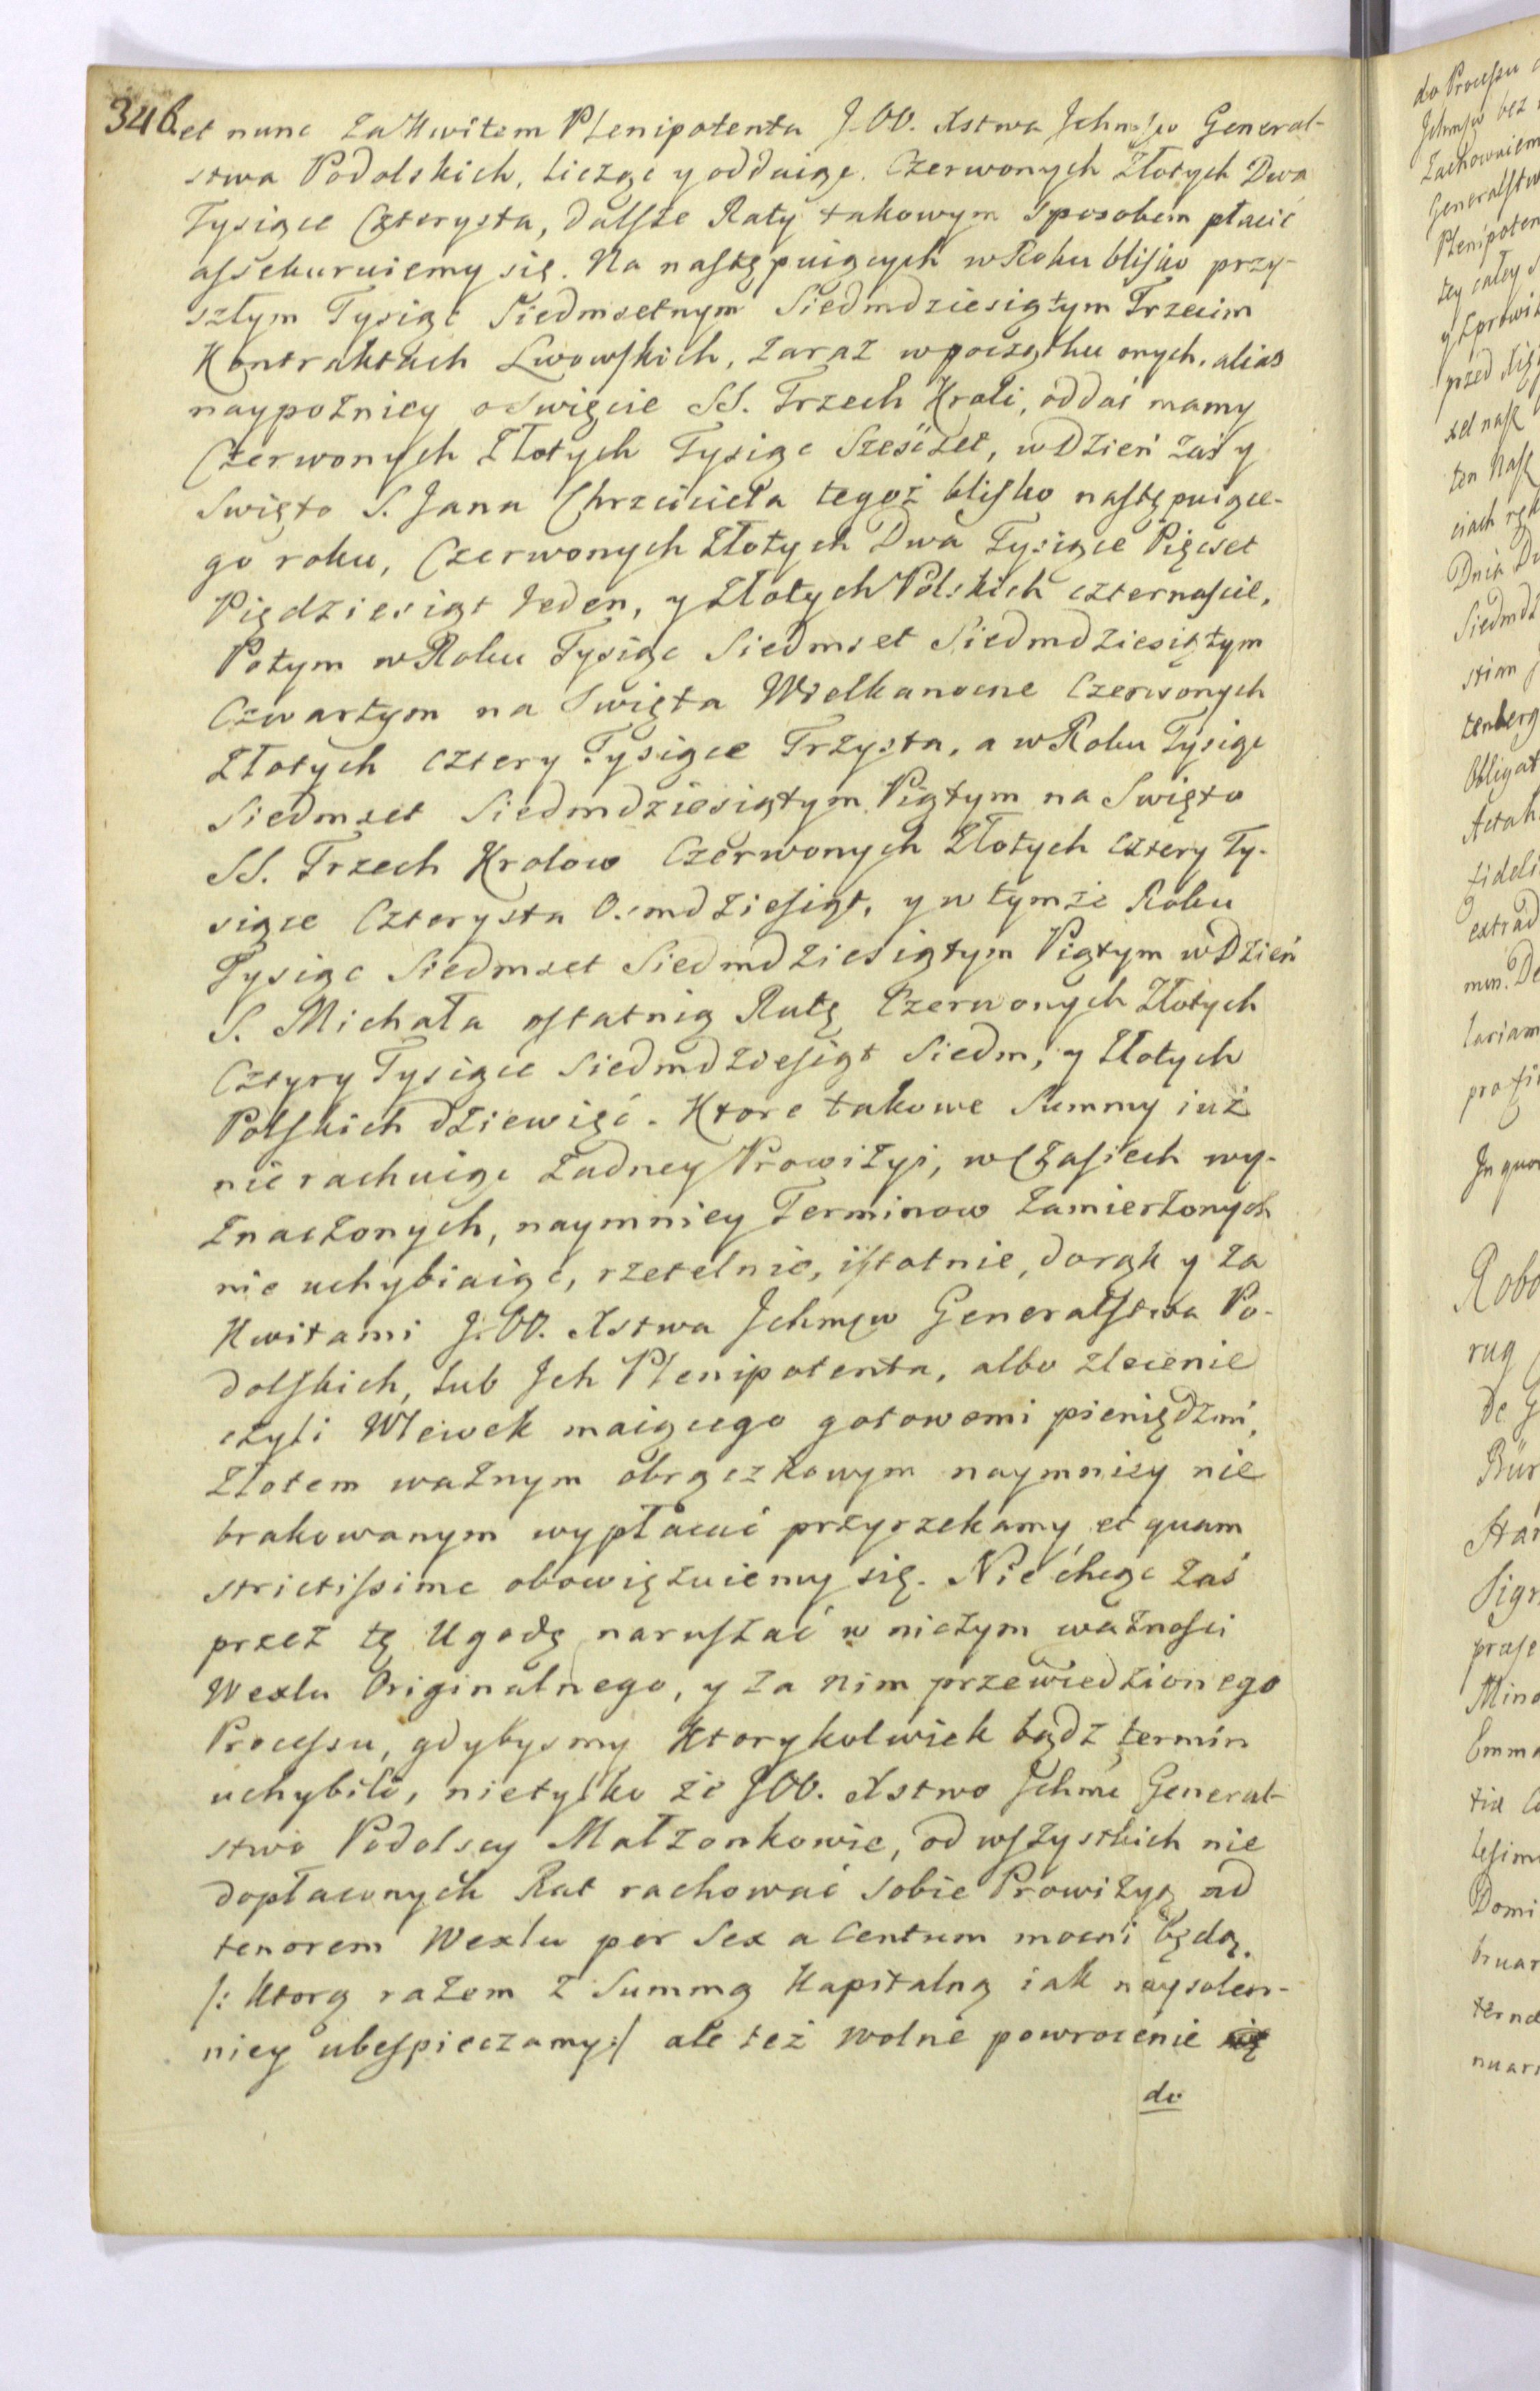 346. et nunc za Kwitem Plenipotenta J.OO. Xstwa Jchmſw General-
stwa Podolskich, licząc y odduiąc. Czerwonych Złotych Dwa
Tysiące Czterysta, dalsze Raty takowym sposobem płacić
aſſekuruiemy się. Na naſtępuiących w Roku bliſko przy-
szłym Tysiąc Siedmsetnym Siedmdziesiątym Trzecim
Kontraktach Lwowſkich, zaraz w początku onych, alias
naypoźniey o Swięcie SS. Trzech Kroli, oddać mamy
Czerwonych Złotych Tysiąc Sześćset, w Dzień zaś y
Swięto S. Jana Chrzciciela tegoż bliſko naſtępuiące-
go roku, Czerwonych Złotych Dwa Tysiące Pięcset
Piędziesiąt Jeden, y Złotych Polskich czternaſcie,
Potym w Roku Tysiąc Siedmset Siedmdziesiątym
Czwartym na Swięta Wielkanocne Czerwonych
Złotych cztery Tysiące Trzysta, a w Roku Tysiąc
Siedmset Siedmdziesiątym Piątym na Swięto
SS. Trzech Krolow Czerwonych Złotych cztery Ty-
siące Czterysta Osmdzieſiąt, y w tymże Roku
Tysiąc Siedmset Siedmdziesiątym Piątym w Dzień
S. Michała oſtatnią Ratę Czerwonych Złotych
Cztyry Tysiące Siedmdzieſiąt Siedm, y Złotych
Polſkich dziewięć. Ktore takowe Summy iuż
nie rachuiąc żadney Prowizyi, w Czaſiech wy-
znaczonych, naymniey Terminow zamierzonych
nie uchybiaiąc, rzetelnie, iſtotnie, do rąk y za
Kwitami J.OO. Xstwa Jchmſw Generalſtwa Po-
dolſkich, lub Jch Plenipotenta, albo zlecenie
czyli Wlewek maiącego gotowemi pieniędzmi,
złotem ważnym obrączkowym naymniey nie
brakowanym wypłacić przyrzekamy, et quam
strictiſsime obowiązuiemy się. Nie chcąc zaś
przez tę Ugodę naruſzać w niczym ważnoſci
Wexlu Originalnego, y za nim przewiedzionego
Proceſsu, gdybysmy ktorykolwiek bądź termin
uchybili, nietylko że JOO. Xstwo Jchmć General-
stwo Podolscy Małzonkowie, od wſzystkich nie
dopłaconych Rat rachować sobie Prowizyą ad
tenorem Wexlu per Sex a Centum mocni będą.
/: Ktorą razem z Summą Kapitalną iak naysolen-
niey ubeſpieczamy:/ ale też wolne powrocenie się
do